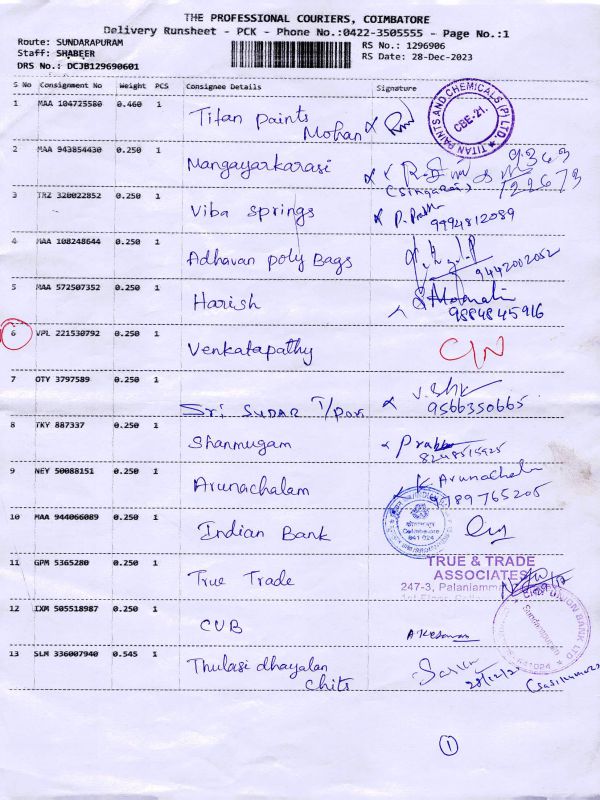 THE PROFESSIONAL COURIERS, COIMBATORE
Delivery Runsheet - PCK - Phone No.:0422-3505555 - Page No.:1
Route: SUNDARAPURAM
RS No.: 1296906
Staff: SHABEER
RS Date: 28-Dec-2023
DRS No.: DCJB129690601
S No Consignment No Weight PCS Consignee Details Signature
1 MAA 104725580 0.460 1 Titan paints
Mohan
TITAN PAINTS AND CHEMICALS (P) LTD.
CBE-21.
2 MAA 943854430 0.250 1 Mangayarkarasi
9363
122673
3 TRZ 320022852 0.250 1 Viba springs
9994812089
4 MAA 108248644 0.250 1 Adhavan poly Bags
9442002052
5 MAA 572507352 0.250 1 Harish
9884845916
6 VPL 221530792 0.250 1 Venkatapathy C/N
7 OTY 3797589 0.250 1
Sri SUDAR T/por
9566350665
8 TKY 887337 0.250 1 Shanmugam
9 NEY 50088151 0.250 1 Arunachalam K Arunachala
789765205
10 MAA 944066089 0.250 1 Indian Bank
Coimbatore
641 024
11 GPM 5365280 0.250 1 True Trade
TRUE & TRADE
ASSOCIATES
247-3, Palaniamm
12 IXM 505518987 0.250 1 CUB
UNION BANK LTD
Sundarapuram
641024
13 SLM 336007940 0.545 1 Thulasi dhayalan
chits
28/12/2
1